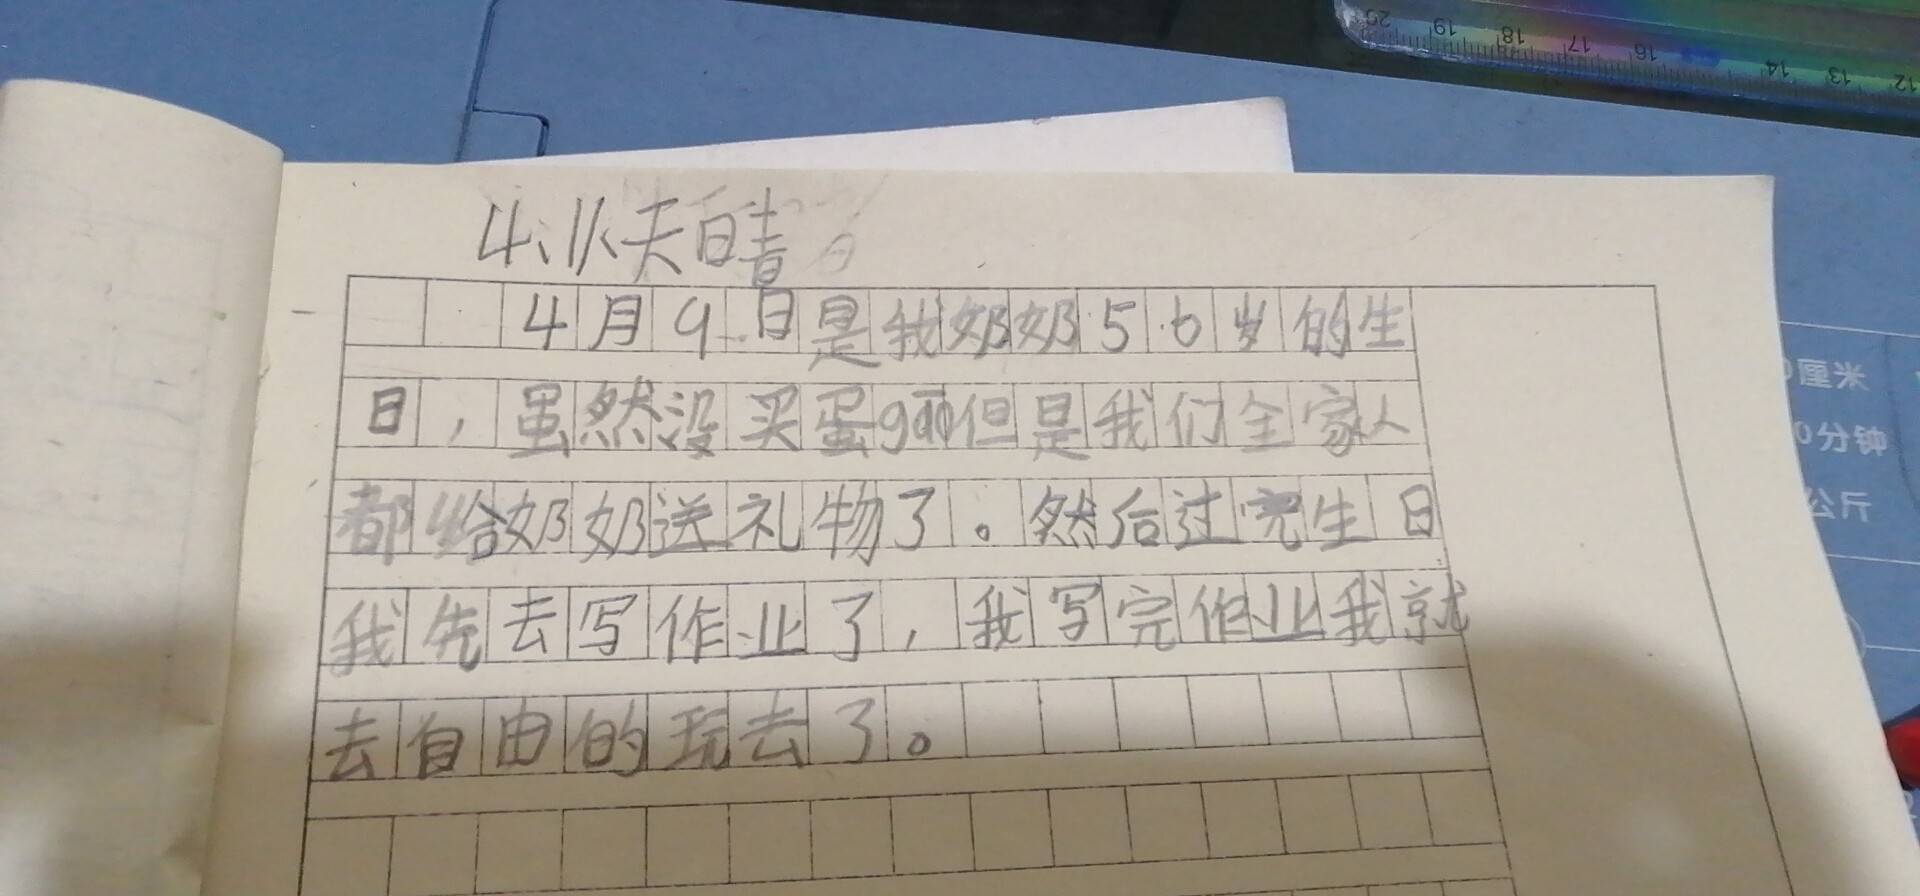 20 19 18 17 16 14 13 12
4月9日是我奶奶56岁的生
日，虽然没买蛋gāo但是我们全家人
都给奶奶送礼物了。然后过完生日
我先去写作业了，我写完作业我就
去自由的玩去了。
厘米
0分钟
公斤